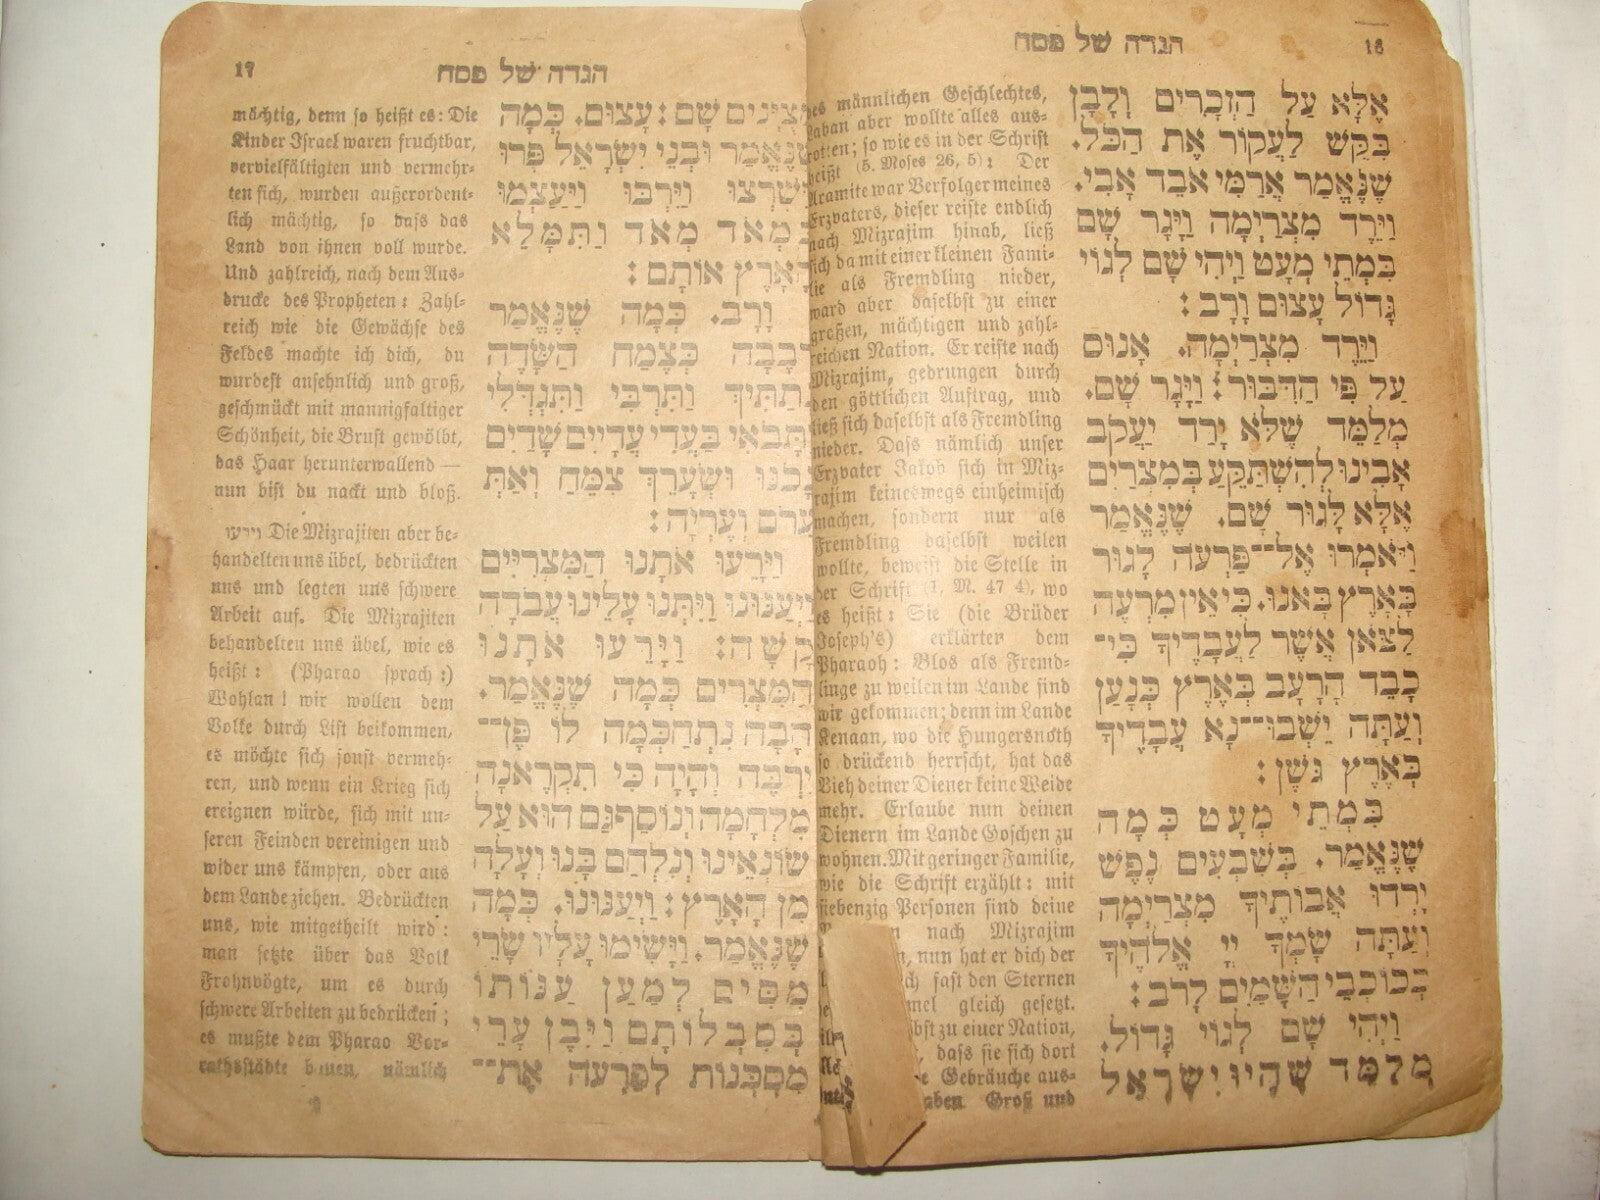 16
הגדה של פסח
אֶלָּא עַל הַזְּכָרִים וְלָבָן
בִּקֵּשׁ לַעֲקוֹר אֶת הַכֹּל.
שֶׁנֶּאֱמַר אֲרַמִּי אֹבֵד אָבִי.
וַיֵּרֶד מִצְרַיְמָה וַיָּגָר שָׁם
בִּמְתֵי מְעָט וַיְהִי שָׁם לְגוֹי
גָּדוֹל עָצוּם וָרָב:
וַיֵּרֶד מִצְרַיְמָה. אָנוּס
עַל פִּי הַדִּבּוּר: וַיָּגָר שָׁם.
מְלַמֵּד שֶׁלֹּא יָרַד יַעֲקֹב
אָבִינוּ לְהִשְׁתַּקֵּעַ בְּמִצְרַיִם
אֶלָּא לָגוּר שָׁם. שֶׁנֶּאֱמַר
וַיֹּאמְרוּ אֶל־פַּרְעֹה לָגוּר
בָּאָרֶץ בָּאנוּ. כִּי אֵין מִרְעֶה
לַצֹּאן אֲשֶׁר לַעֲבָדֶיךָ כִּי־
כָבֵד הָרָעָב בְּאֶרֶץ כְּנָעַן
וְעַתָּה יֵשְׁבוּ־נָא עֲבָדֶיךָ
בְּאֶרֶץ גֹּשֶׁן:
בִּמְתֵי מְעָט כְּמָה
שֶׁנֶּאֱמַר. בְּשִׁבְעִים נֶפֶשׁ
יָרְדוּ אֲבוֹתֶיךָ מִצְרַיְמָה
וְעַתָּה שָׂמְךָ יְיָ אֱלֹהֶיךָ
כְּכוֹכְבֵי הַשָּׁמַיִם לָרֹב:
וַיְהִי שָׁם לְגוֹי גָּדוֹל.
מְלַמֵּד שֶׁהָיוּ יִשְׂרָאֵל
es männlichen Geschlechtes,
Laban aber wollte alles aus-
rotten; so wie es in der Schrift
heißt (5. Moses 26, 5): Der
Aramite war Verfolger meines
Erzvaters, dieser reiste endlich
nach Mizrajim hinab, ließ
sich da mit einer kleinen Fami-
lie als Fremdling nieder,
ward aber daselbst zu einer
großen, mächtigen und zahl-
reichen Nation. Er reiste nach
Mizrajim, gedrungen durch
den göttlichen Auftrag, und
ließ sich daselbst als Fremdling
nieder. Dass nämlich unser
Erzvater Jakob sich in Miz-
rajim keineswegs einheimisch
machen, sondern nur als
Fremdling daselbst weilen
wollte, beweist die Stelle in
der Schrift (1. M. 47 4), wo
es heißt: Sie (die Brüder
Joseph's) erklärten dem
Pharaoh: Blos als Fremd-
linge zu weilen im Lande sind
wir gekommen; denn im Lande
Kenaan, wo die Hungersnoth
so drückend herrscht, hat das
Vieh deiner Diener keine Weide
mehr. Erlaube nun deinen
Dienern im Lande Goschen zu
wohnen. Mit geringer Familie,
wie die Schrift erzählt: mit
siebenzig Personen sind deine
nach Mizrajim
, nun hat er dich der
fast den Sternen
gleich gesetzt.
zu einer Nation,
dass sie sich dort
Gebräuche aus-
Groß und
17
הגדה של פסח
מְצֻיָּנִים שָׁם: עָצוּם. כְּמָה
שֶׁנֶּאֱמַר וּבְנֵי יִשְׂרָאֵל פָּרוּ
וַיִּשְׁרְצוּ וַיִּרְבּוּ וַיַּעַצְמוּ
בִּמְאֹד מְאֹד וַתִּמָּלֵא
הָאָרֶץ אוֹתָם:
וָרָב. כְּמָה שֶׁנֶּאֱמַר
רְבָבָה כְּצֶמַח הַשָּׂדֶה
נְתַתִּיךְ וַתִּרְבִּי וַתִּגְדְּלִי
וַתָּבֹאִי בַּעֲדִי עֲדָיִים שָׁדַיִם
נָכֹנוּ וּשְׂעָרֵךְ צִמֵּחַ וְאַתְּ
עֵרֹם וְעֶרְיָה:
וַיָּרֵעוּ אֹתָנוּ הַמִּצְרִיִּים
וַיְעַנּוּנוּ וַיִּתְּנוּ עָלֵינוּ עֲבֹדָה
קָשָׁה: וַיָּרֵעוּ אֹתָנוּ
הַמִּצְרִים כְּמָה שֶׁנֶּאֱמַר.
הָבָה נִתְחַכְּמָה לוֹ פֶּן־
יִרְבֶּה וְהָיָה כִּי תִקְרֶאנָה
מִלְחָמָה וְנוֹסַף גַּם הוּא עַל
שׂוֹנְאֵינוּ וְנִלְחַם בָּנוּ וְעָלָה
מִן הָאָרֶץ: וַיְעַנּוּנוּ. כְּמָה
שֶׁנֶּאֱמַר. וַיָּשִׂימוּ עָלָיו שָׂרֵי
מִסִּים לְמַעַן עַנּוֹתוֹ
בְּסִבְלוֹתָם וַיִּבֶן עָרֵי
מִסְכְּנוֹת לְפַרְעֹה אֶת־
mächtig, denn so heißt es: Die
Kinder Israel waren fruchtbar,
vervielfältigten und vermehr-
ten sich, wurden außerordent-
lich mächtig, so dass das
Land von ihnen voll wurde.
Und zahlreich, nach dem Aus-
drucke des Propheten: Zahl-
reich wie die Gewächse des
Feldes machte ich dich, du
wurdest ansehnlich und groß,
geschmückt mit mannigfaltiger
Schönheit, die Brust gewölbt,
das Haar herunterwallend —
nun bist du nackt und bloß.
וירעו Die Mizrajiten aber be-
handelten uns übel, bedrückten
uns und legten uns schwere
Arbeit auf. Die Mizrajiten
behandelten uns übel, wie es
heißt: (Pharao sprach:)
Wohlan! wir wollen dem
Volke durch List beikommen,
es möchte sich sonst vermeh-
ren, und wenn ein Krieg sich
ereignen würde, sich mit un-
seren Feinden vereinigen und
wider uns kämpfen, oder aus
dem Lande ziehen. Bedrückten
uns, wie mitgetheilt wird:
man setzte über das Volk
Frohnvögte, um es durch
schwere Arbeiten zu bedrücken;
es mußte dem Pharao Vor-
rathsstädte bauen, nämlich